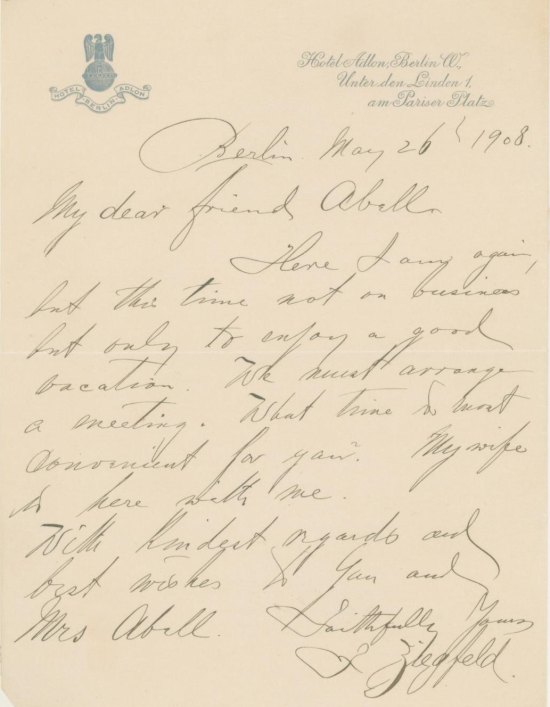 HOTEL ADLON
BERLIN
Hotel Adlon, Berlin W.,
Unter den Linden 1,
am Pariser Platz
Berlin May 26 1908.
My dear friend Abell.
Here I am again,
but this time not on business
but only to enjoy a good
vacation. We must arrange
a meeting. What time is most
convenient for you? My wife
is here with me.
With kindest regards and
best wishes to You and
Mrs Abell. Faithfully Yours
Ziegfeld.